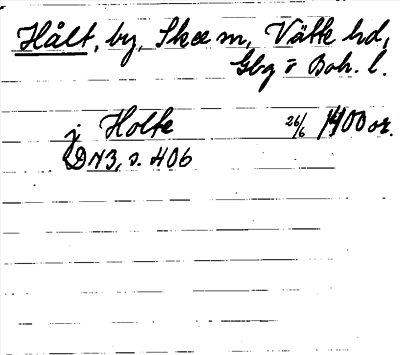 Hålt, by, Skee sn, Vätte hd,
Gbg o Boh. l.
j Holte 26/6 1400 or.
DN3, s. 406